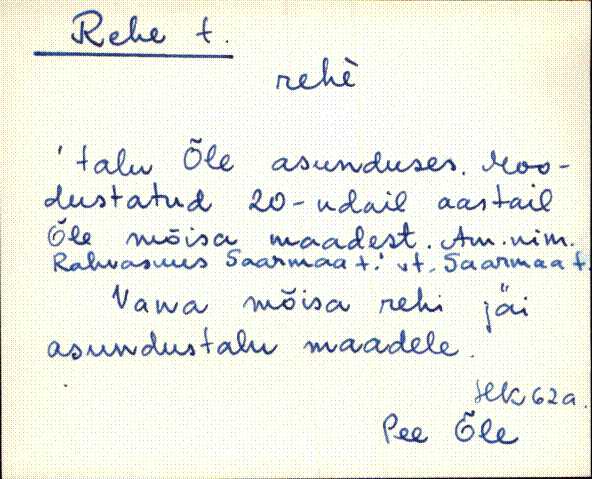 Rehe t.
rehè
'talu Õle asunduses. Moo-
dustatud 20-ndail aastail
Õle mõisa maadest. Am. nim.
Rahvasuus Saarmaa t.' vt. Saarmaa t.
Vana mõisa rehi jäi
asundustalu maadele.
HK 62a.
Pee Õle